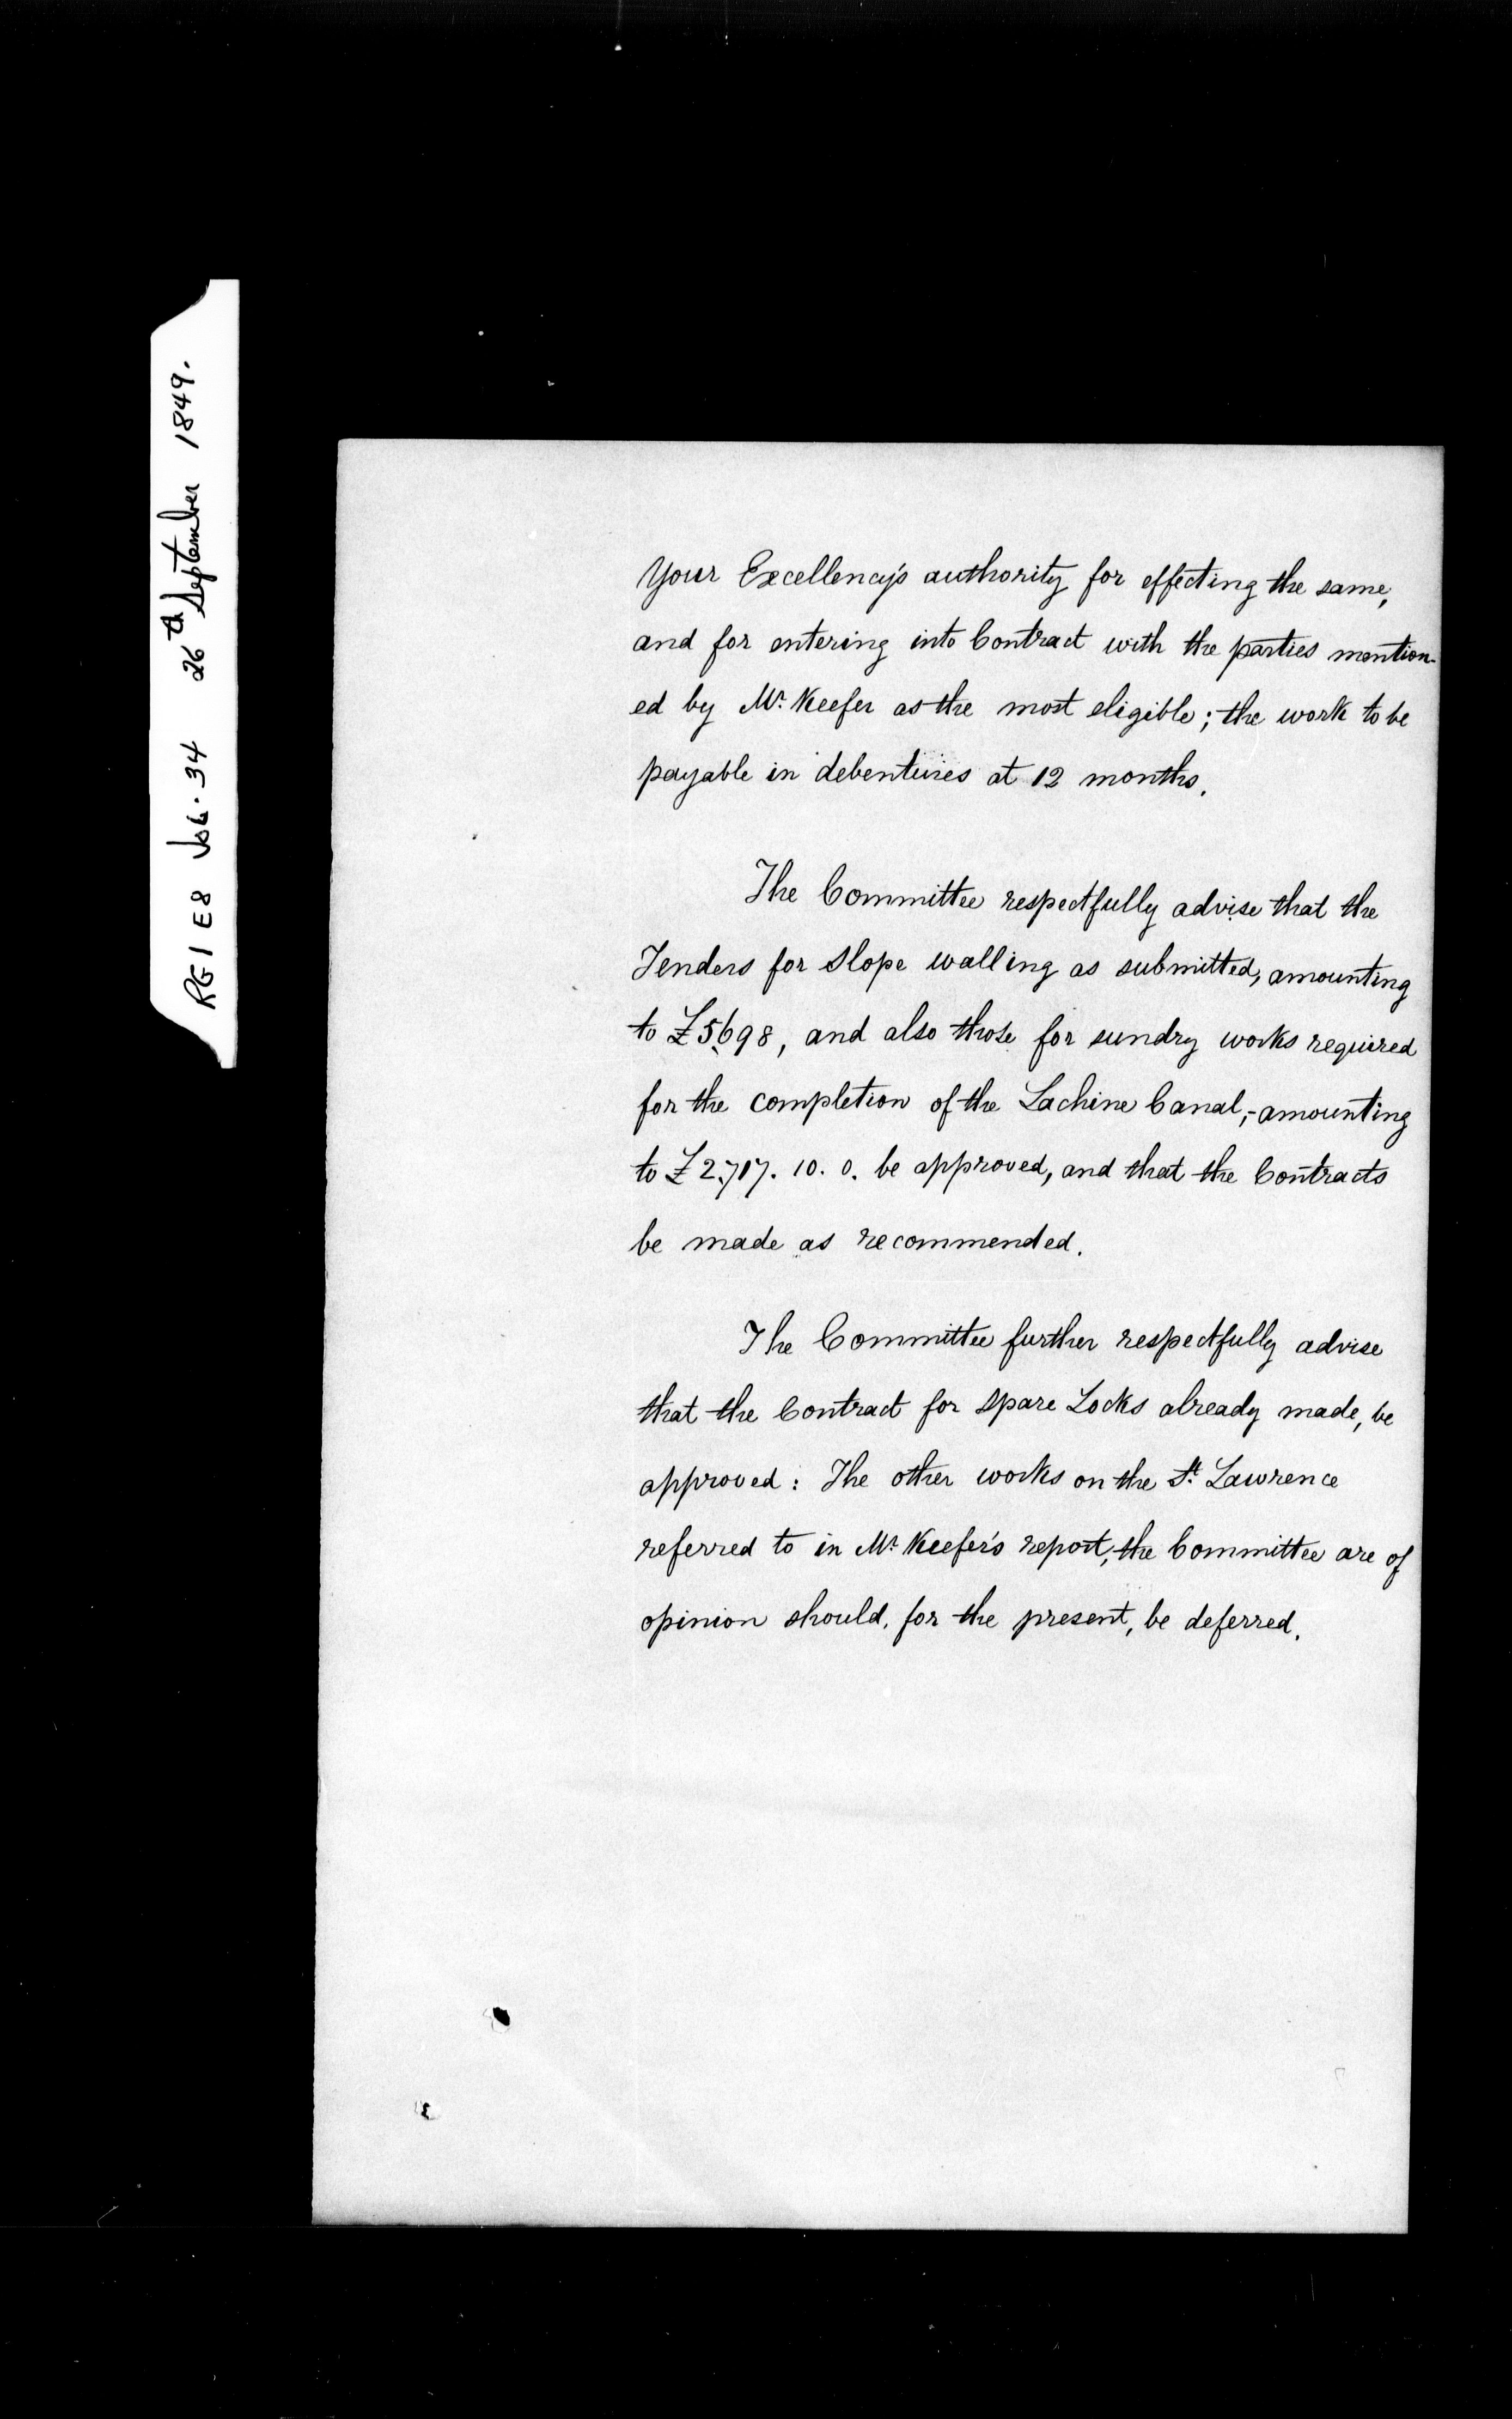 RG 1 E8 Vol. 34 26th September 1849.
Your Excellency's authority for effecting the same,
and for entering into Contract with the parties mention-
ed by Mr. Keefer as the most eligible; the work to be
payable in debentures at 12 months.
The Committee respectfully advise that the
Tenders for Slope walling as submitted, amounting
to £5,698, and also those for sundry works required
for the completion of the Lachine Canal,- amounting
to £2,717. 10. 0. be approved, and that the Contracts
be made as recommended.
The Committee further respectfully advise
that the Contract for Spare Locks already made, be
approved: The other works on the St. Lawrence
referred to in Mr Keefer's report, the Committee are of
opinion should, for the present, be deferred.